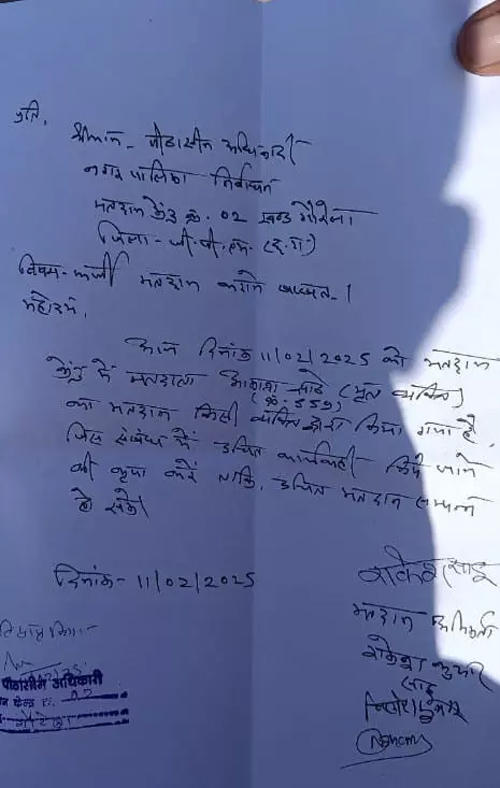 प्रति,
श्रीमान - पीठासीन अधिकारी
नगर पालिका निर्वाचन
मतदान केंद्र क्र. 02 खण्ड गौरेला
जिला - जी.पी.एम. (छ.ग.)
विषय - फर्जी मतदान करने बाबत।
महोदय,
आज दिनांक 11/02/2025 को मतदान
केंद्र में मतदाता (मृत व्यक्ति)
(क्र. 559)
का मतदान किसी व्यक्ति द्वारा किया गया है,
जिस संबंध में उचित कार्यवाही किये जाने
की कृपा करें ताकि, उचित मतदान सम्पन्न
हो सके।
दिनांक - 11/02/2025
राकेश साहू
मतदान
राकेश कुमार
साहू
पीठासीन अधिकारी
केन्द्र
गौरेला